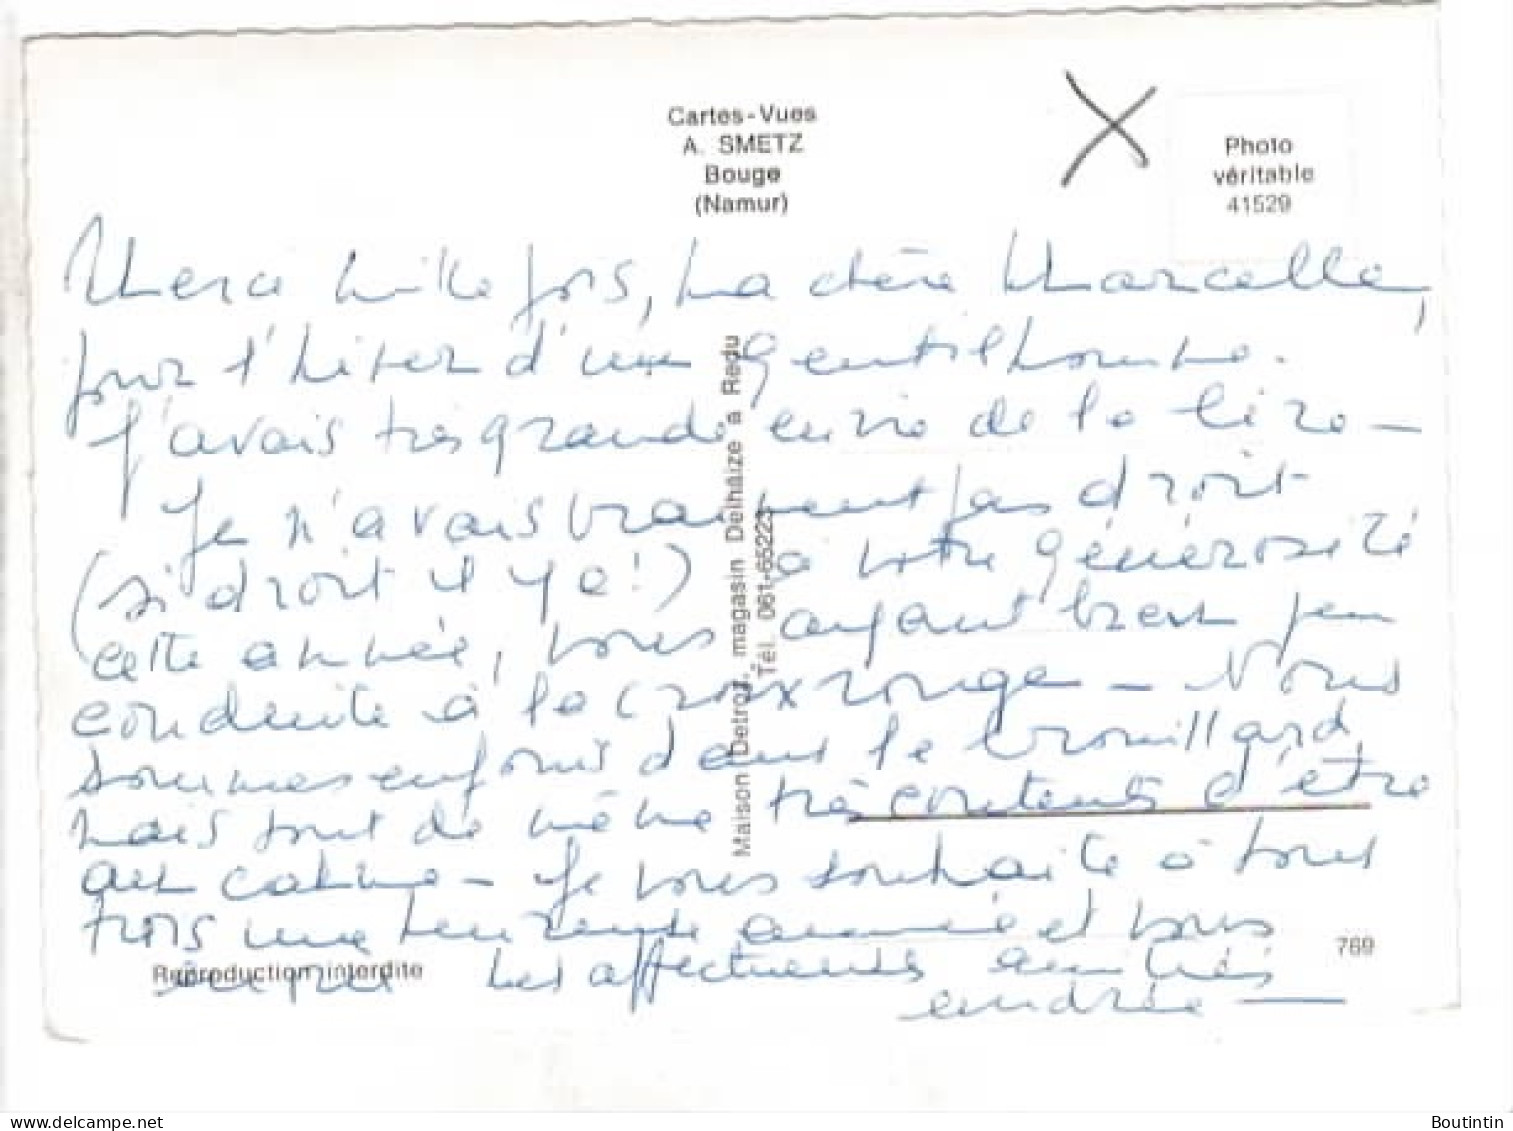 Cartes-Vues
A. SMETZ
Bouge
(Namur)
Photo
véritable
41529
Merci mille fois, ma chère Marcelle,
pour l'hiver d'un gentilhomme.
J'avais très grande envie de le lire –
Je n'avais vraiment pas droit
(si droit il y a!) à votre générosité
cette année, vous ayant bien peu
conduite à la croix rouge – Nous
sommes enfouis dans le brouillard,
mais tout de même très contents d'être
au calme – Je vous souhaite à tous
trois une heureuse année et vous
mes affectueuses amitiés
andrée –
Maison Detroz, magasin Delhaize a Redu
Tél. 061-65223
Reproduction interdite
769
Boutintin
delcampe.net